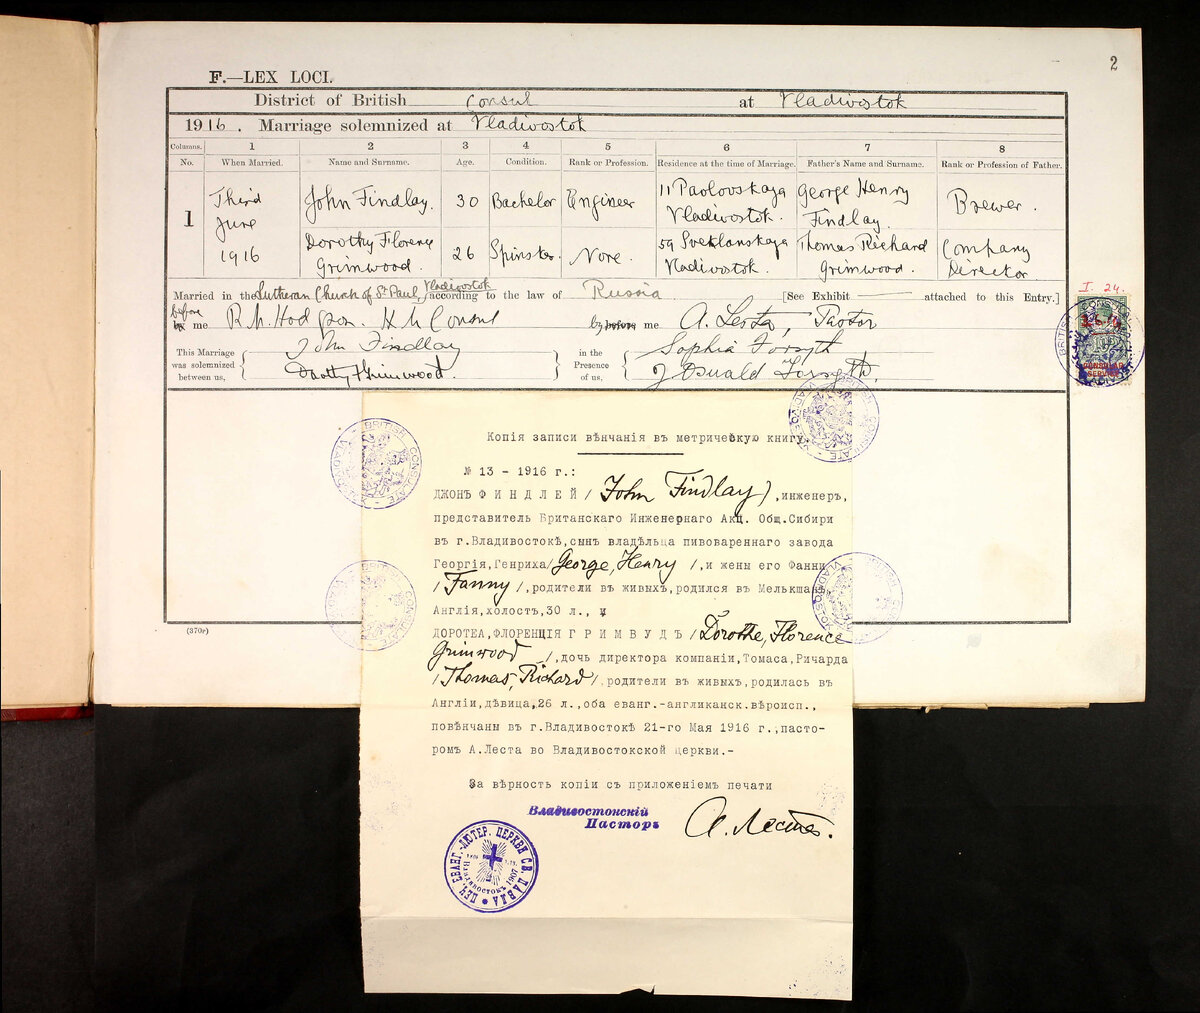 2
F.—LEX LOCI.
District of British Consul at Vladivostok
1916. Marriage solemnized at Vladivostok
Columns. 1 2 3 4 5 6 7 8
No. When Married. Name and Surname. Age. Condition. Rank or Profession. Residence at the time of Marriage. Father's Name and Surname. Rank or Profession of Father.
1 Third June 1916 John Findlay. 30 Bachelor Engineer 11 Paolovskaya Vladivostok. George Henry Findlay. Brewer.
Dorothy Florence Grimwood. 26 Spinster None. 59 Svetlanskaya Vladivostok. Thomas Richard Grimwood. Company Director.
Married in the Lutheran Church of St Paul, Vladivostok according to the law of Russia [See Exhibit — attached to this Entry.]
I. 24.
before me R. M. Hodgson. H M Consul by before me A. Lesta, Pastor
This Marriage was solemnized between us, John Findlay in the Presence of us, Sophia Forsyth
Dorothy F Grimwood. J Oswald Forsyth.
BRITISH CONSULATE VLADIVOSTOK
CONSULAR SERVICE
Копія записи вѣнчанія въ метрическую книгу
№ 13 - 1916 г.:
ДЖОНЪ ФИНДЛЕЙ /John Findlay/, инженеръ,
представитель Британскаго Инженернаго Акц. Общ.Сибири
въ г.Владивостокѣ,сынъ владѣльца пивовареннаго завода
Георгія,Генриха/George, Henry/,и жены его Фанни
/Fanny/,родители въ живыхъ,родился въ Мелькшам
Англія,холостъ,30 л., и
ДОРОТЕА,ФЛОРЕНЦІЯ ГРИМВУДЪ /Dorothe, Florence
Grimwood /,дочь директора компаніи,Томаса,Ричарда
/Thomas, Richard/,родители въ живыхъ,родилась въ
Англіи,дѣвица,26 л.,оба еванг.-англиканск.вѣроисп.,
повѣнчаны въ г.Владивостокѣ 21-го Мая 1916 г.,пасто-
ромъ А.Леста во Владивостокской церкви.-
За вѣрность копіи съ приложеніемъ печати
Владивостокскій
Пасторъ
А. Леста.
ПЕЧ. ЕВАНГ.-ЛЮТЕР. ЦЕРКВИ СВ. ПАВЛА
Владивостокъ 1907
(370r)